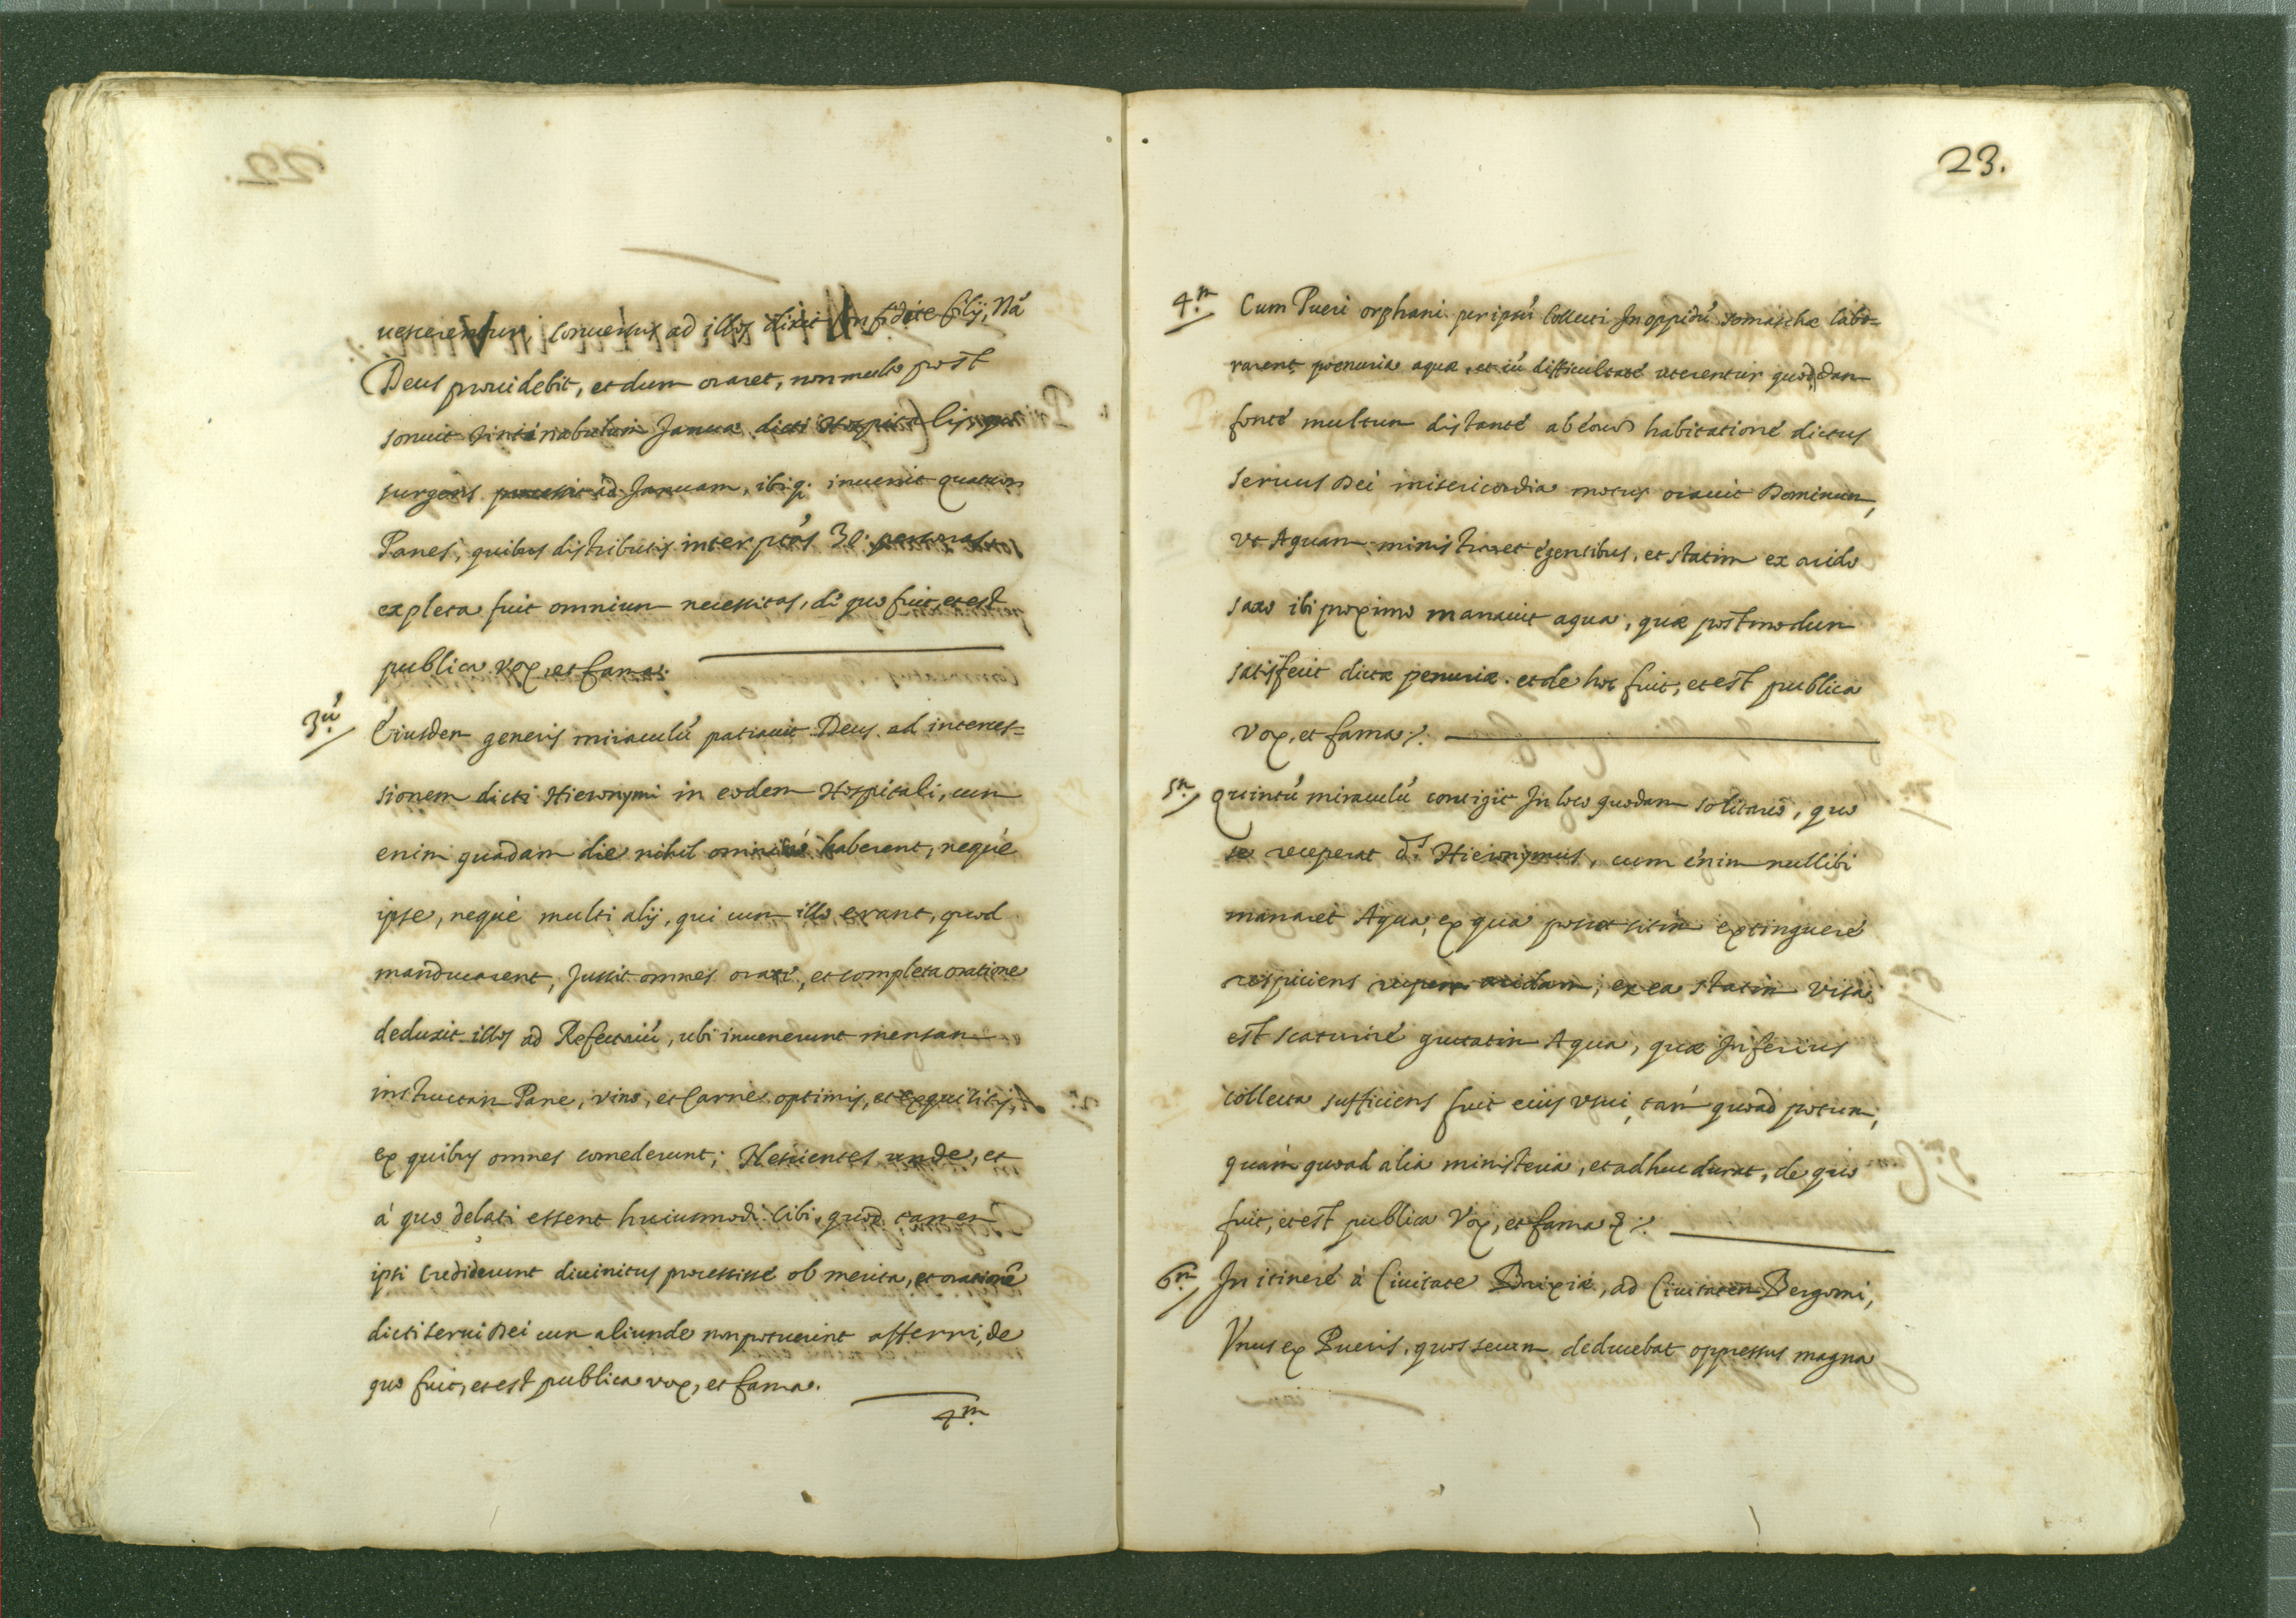 uescerentur, conuersus ad illos dixit confidite filij, Nā
Deus prouidebit, et dum oraret, non multo post
sonuit tintinabulum Januæ dicti Hospitalis, qui
surgens processit ad Januam, ibiq. inuenit quatuor
Panes, quibus distributis inter ptās 30. personas
expleta fuit omnium necessitas, de quo fuit, et est
publica vox, et fama.
3ū. Eiusdem generis miraculū patrauit Deus ad interces=
sionem dicti Hieronymi in eodem Hospitali, cum
enim quadam die nihil omninó haberent, nequé
ipse, nequé multi alij, qui cum illo erant, quod
manducarent, Jussit omnes orare, et completa oratione
deduxit illos ad Refectoriū, ubi inuenerunt mensam
instructam Pane, vino, et Carne optimis, et exquisitis,
ex quibus omnes comederunt; Nescientes unde, et
á quo delati essent huiusmodi Cibi, quod tamen
ipsi Crediderunt diuinitus processissé ob merita, et orationē
dicti serui Dei cum aliunde non potuerint afferri, de
quo fuit, et est publica vox, et fama.
4m.
23.
4m. Cum Pueri orphani per ipsū Collecti In oppidū Somaschæ labo=
rarent poenuria aquæ, et cū difficultaté uterentur quodam
fonté multum distanté ab eorum habitationé dictus
seruus Dei misericordia motus orauit Dominum,
vt Aquam ministraret egentibus, et statim ex arido
saxo ibi proximo manauit aqua, quæ postmodum
satisfecit dictæ penuriæ. et de hoc fuit, et est publica
vox, et fama./.
5m. Quintū miraculū contigit In loco quodam solitario, quo
se receperat ds. Hieronymus, cum enim nullibi
manaret Aqua, ex qua posset sitim extingueré
respiciens rupem aridam, ex ea statim visa
est scaturiré guttatim Aqua, quæ Inferius
collecta sufficiens fuit eius vsui, tám quoad potum,
quám quoad alia ministeria, et adhuc durat, de quo
fuit, et est publica Vox, et fama &./.
6m. In itineré á Ciuitate Brixiæ, ad Ciuitatem Bergomi,
Vnus ex Pueris, quos secum deducebat oppressus magna